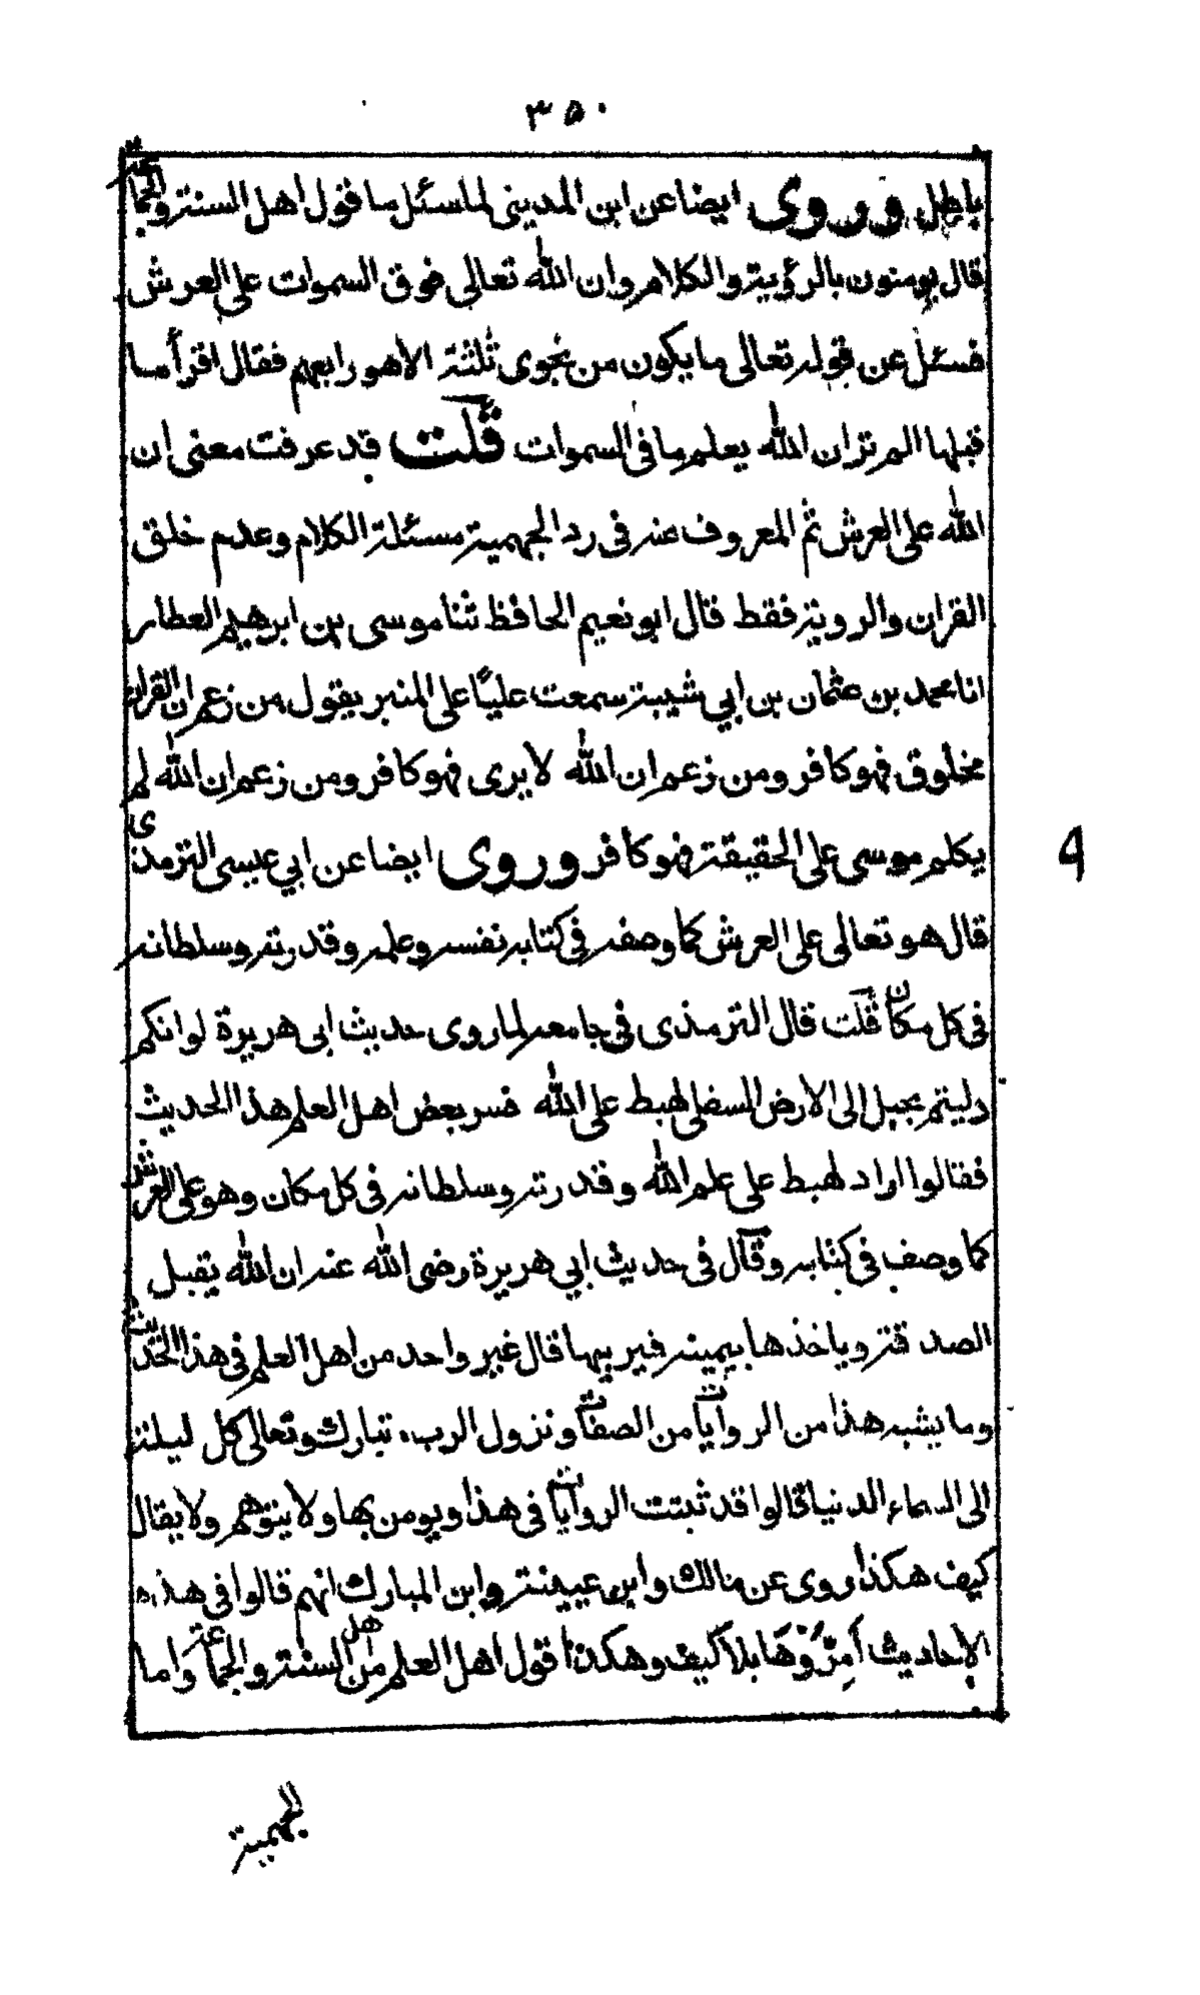 ٣٥٠
باطل وروى ايضا عن ابن المديني لما سئل ما قول اهل السنة والجماعة
قال يومنون بالرؤية والكلام وان الله تعالى فوق السموات على العرش
فسئل عن قوله تعالى ما يكون من نجوى ثلثة الا هو رابعهم فقال اقرأ ما
قبلها الم تر ان الله يعلم ما في السموات قلت قد عرفت معنى ان
الله على العرش ثم المعروف عنه في رد الجهمية مسئلة الكلام وعدم خلق
القران والروية فقط قال ابو نعيم الحافظ ثنا موسى بن ابرهيم العطار
انا محمد بن عثمان بن ابي شيبة سمعت عليًا على المنبر يقول من زعم ان القران
مخلوق فهو كافر ومن زعم ان الله لا يرى فهو كافر ومن زعم ان الله لم
يكلم موسى على الحقيقة فهو كافر وروى ايضا عن ابي عيسى الترمذي
قال هو تعالى على العرش كما وصفه في كتابه نفسه وعلمه وقدرته وسلطانه
في كل مكان قلت قال الترمذى في جامعه لما روى حديث ابى هريرة لو انكم
دليتم بحبل الى الارض السفلى لهبط على الله فسر بعض اهل العلم هذا الحديث
فقالوا اراد لهبط على علم الله وقدرته وسلطانه في كل مكان وهو على العرش
كما وصف في كتابه وقال في حديث ابي هريرة رضى الله عنه ان الله يقبل
الصدقة وياخذها بيمينه فيربيها قال غير واحد من اهل العلم في هذا الحديث
وما يشبه هذا من الروايات من الصفات ونزول الرب تبارك وتعالى كل ليلة
الى السماء الدنيا قالوا قد ثبتت الروايات في هذا ويومن بها ولا يتوهم ولا يقال
كيف هكذا روى عن مالك وابن عيينة وابن المبارك انهم قالوا في هذه
الاحاديث أمِرُّوْهَا بلا كيف وهكذا قول اهل العلم من اهل السنة والجماعة واما
الجهمية
9